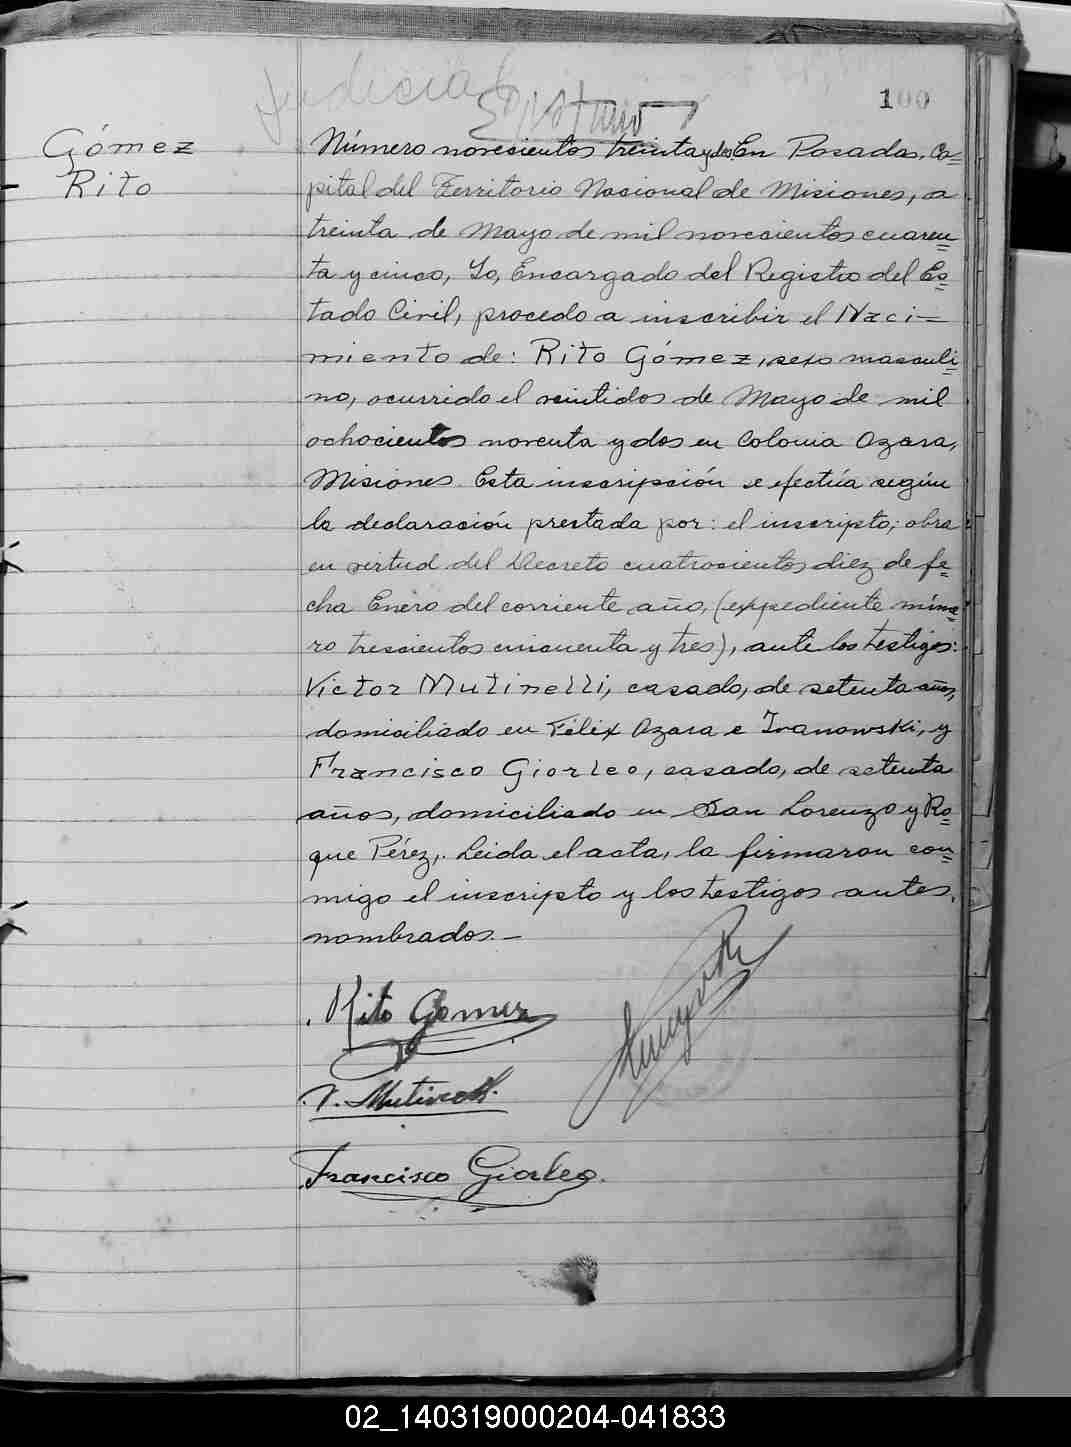 Judicial
100
Gómez
Rito
Número novecientos treinta y dos En Posadas, Ca=
pital del Territorio Nacional de Misiones, a
treinta de Mayo de mil novecientos cuaren=
ta y cinco, Yo, Encargado del Registro del Es=
tado Civil, procedo a inscribir el Naci=
miento de: Rito Gómez, sexo masculi=
no, ocurrido el veintidos de Mayo de mil
ochocientos noventa y dos en Colonia Azara,
Misiones. Esta inscripción se efectúa según
la declaración prestada por: el inscripto; obra
en virtud del Decreto cuatrocientos diez de fe=
cha Enero del corriente año, (expediente núme=
ro trescientos cincuenta y tres), ante los testigos:
Victor Mutinelli, casado, de setenta años,
domiciliado en Félix Azara e Ivanowski, y
Francisco Giorleo, casado, de setenta
años, domiciliado en San Lorenzo y Ro=
que Pérez,. Leida el acta, la firmaron con=
migo el inscripto y los testigos antes
nombrados.—
Rito Gomez
V. Mutinelli
Francisco Giorleo.
02_140319000204-041833